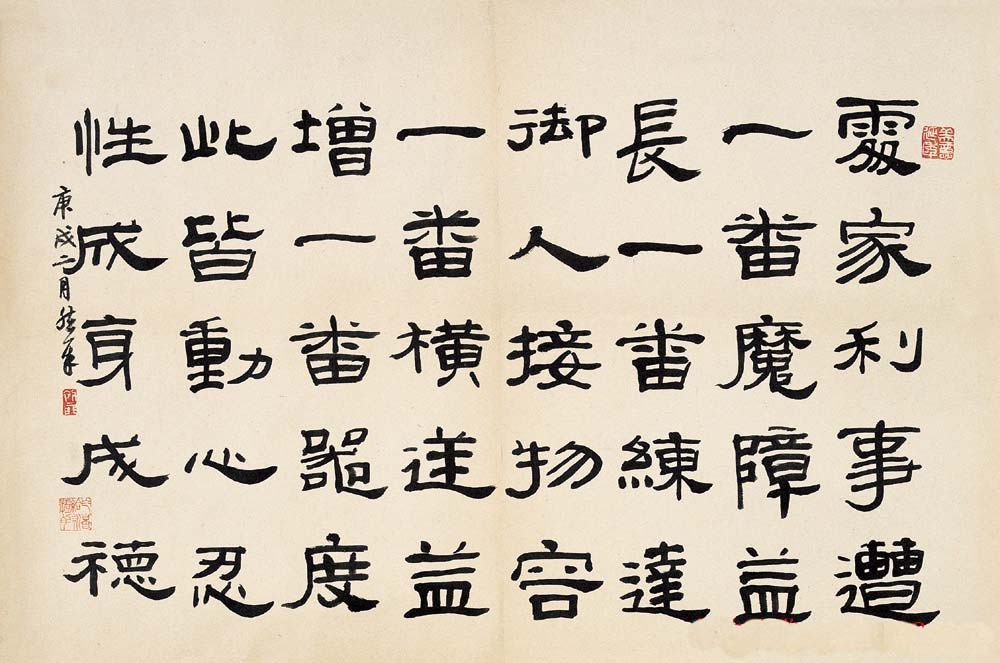 處家利事遭
一番魔障益
長一番練達
御人接物容
一番橫逆益
增一番器度
此皆動心忍
性成身成德
庚戌二月